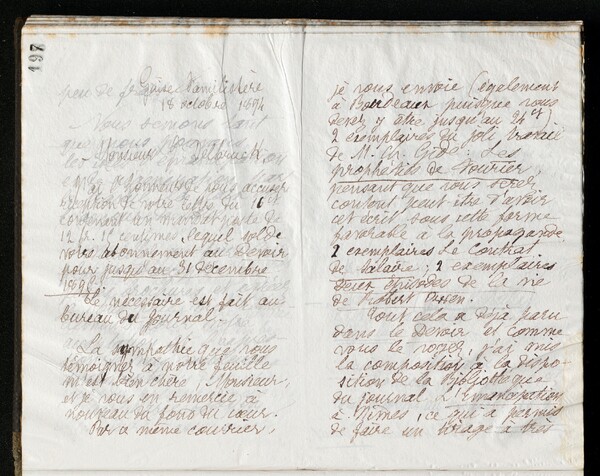 197
Guise Familistère
18 octobre 1894
Monsieur Delbruck,
J'ai l'honneur de vous accuser
réception de votre lettre du 16 ct
contenant un mandat poste de
12 fr. 15 centimes, lequel solde
votre abonnement au Devoir
pour jusqu'au 31 décembre
189
Le nécessaire est fait au
bureau du journal.
La sympathie que vous
témoignez à notre feuille
m'est bien chère, Monsieur,
et je vous en remercie à
nouveau du fond du cœur.
Par ce même courrier,
je vous envoie (également
à Bordeaux puisque vous
devez y être jusqu'au 24 ct)
2 exemplaires du joli travail
de M. Ch. Gide: Les
prophéties de Fourier
pensant que vous serez
content peut être d'avoir
cet écrit sous cette forme
favorable à la propagande.
2 exemplaires Le Contrat
de Salaire; 2 exemplaires
Deux épisodes de la vie
de Robert Owen.
Tout cela a déjà paru
dans le Devoir et comme
vous le voyez, j'ai mis
la composition à la dispo-
sition de la Bibliothèque
du journal L'Emancipation
à Nîmes, ce qui a permis
de faire un tirage à très